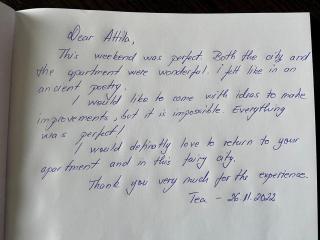 Dear Attila,
This weekend was perfect. Both the city and
the apartment were wonderful. I felt like in an
ancient poetry.
I would like to come with ideas to make
improvements, but it is impossible. Everything
was perfect!
I would definitly love to return to your
apartment and in this fairy city.
Thank you very much for the experience.
Tea - 26.11.2022